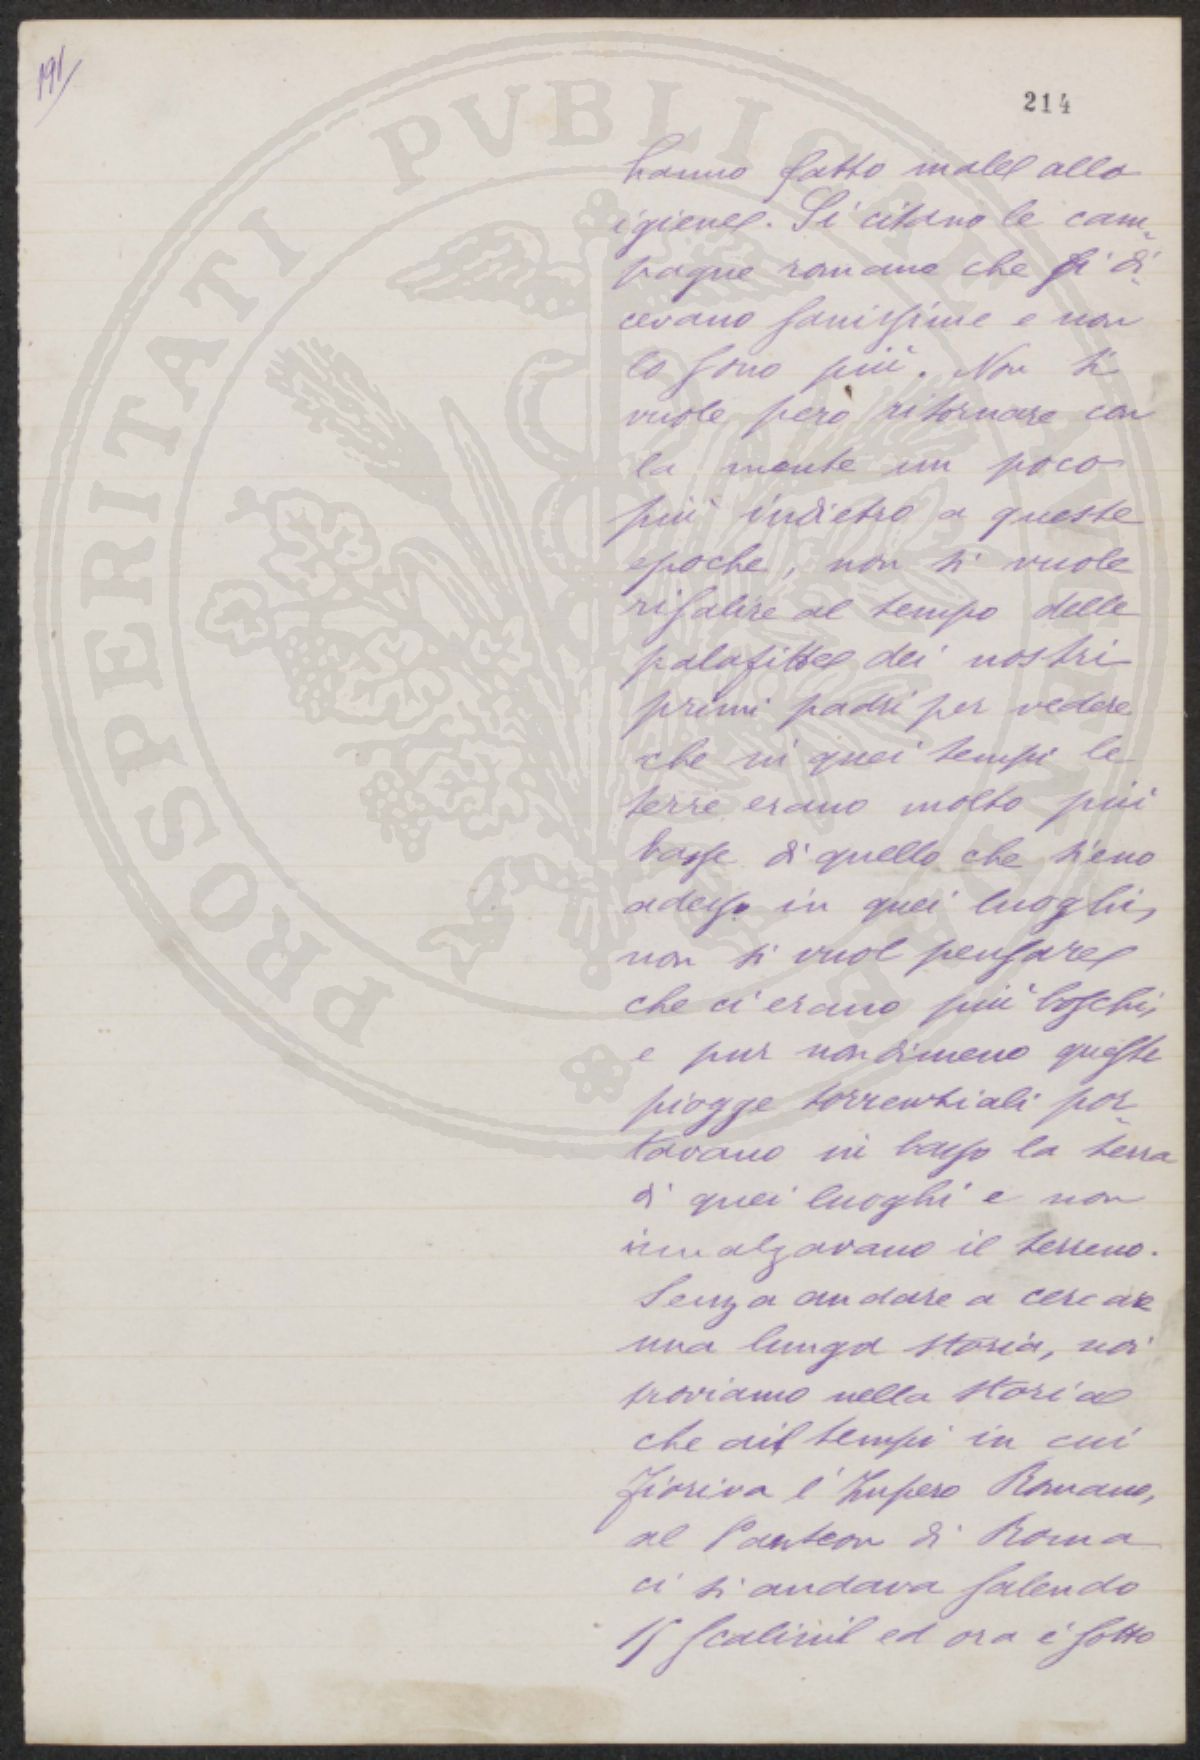 191
214
PROSPERITATI PVBLICAE
hanno fatto male alla
igiene. Si citano le cam-
pagne romane che si di-
cevano sanissime e non
lo sono più. Non si
vuole però ritornare con
la mente un poco
più indietro a queste
epoche, non si vuole
risalire al tempo delle
palafitte dei nostri
primi padri per vedere
che in quei tempi le
terre erano molto più
basse di quello che sieno
adesso in quei luoghi,
non si vuol pensare
che ci erano più boschi,
e pur nondimeno queste
piogge torrenziali por-
tavano in basso la terra
di quei luoghi e non
innalzavano il terreno.
Senza andare a cercare
una lunga storia, noi
troviamo nella storia
che ai tempi in cui
fioriva l'Impero Romano,
al Panteon di Roma
ci si andava salendo
15 scalini ed ora è sotto